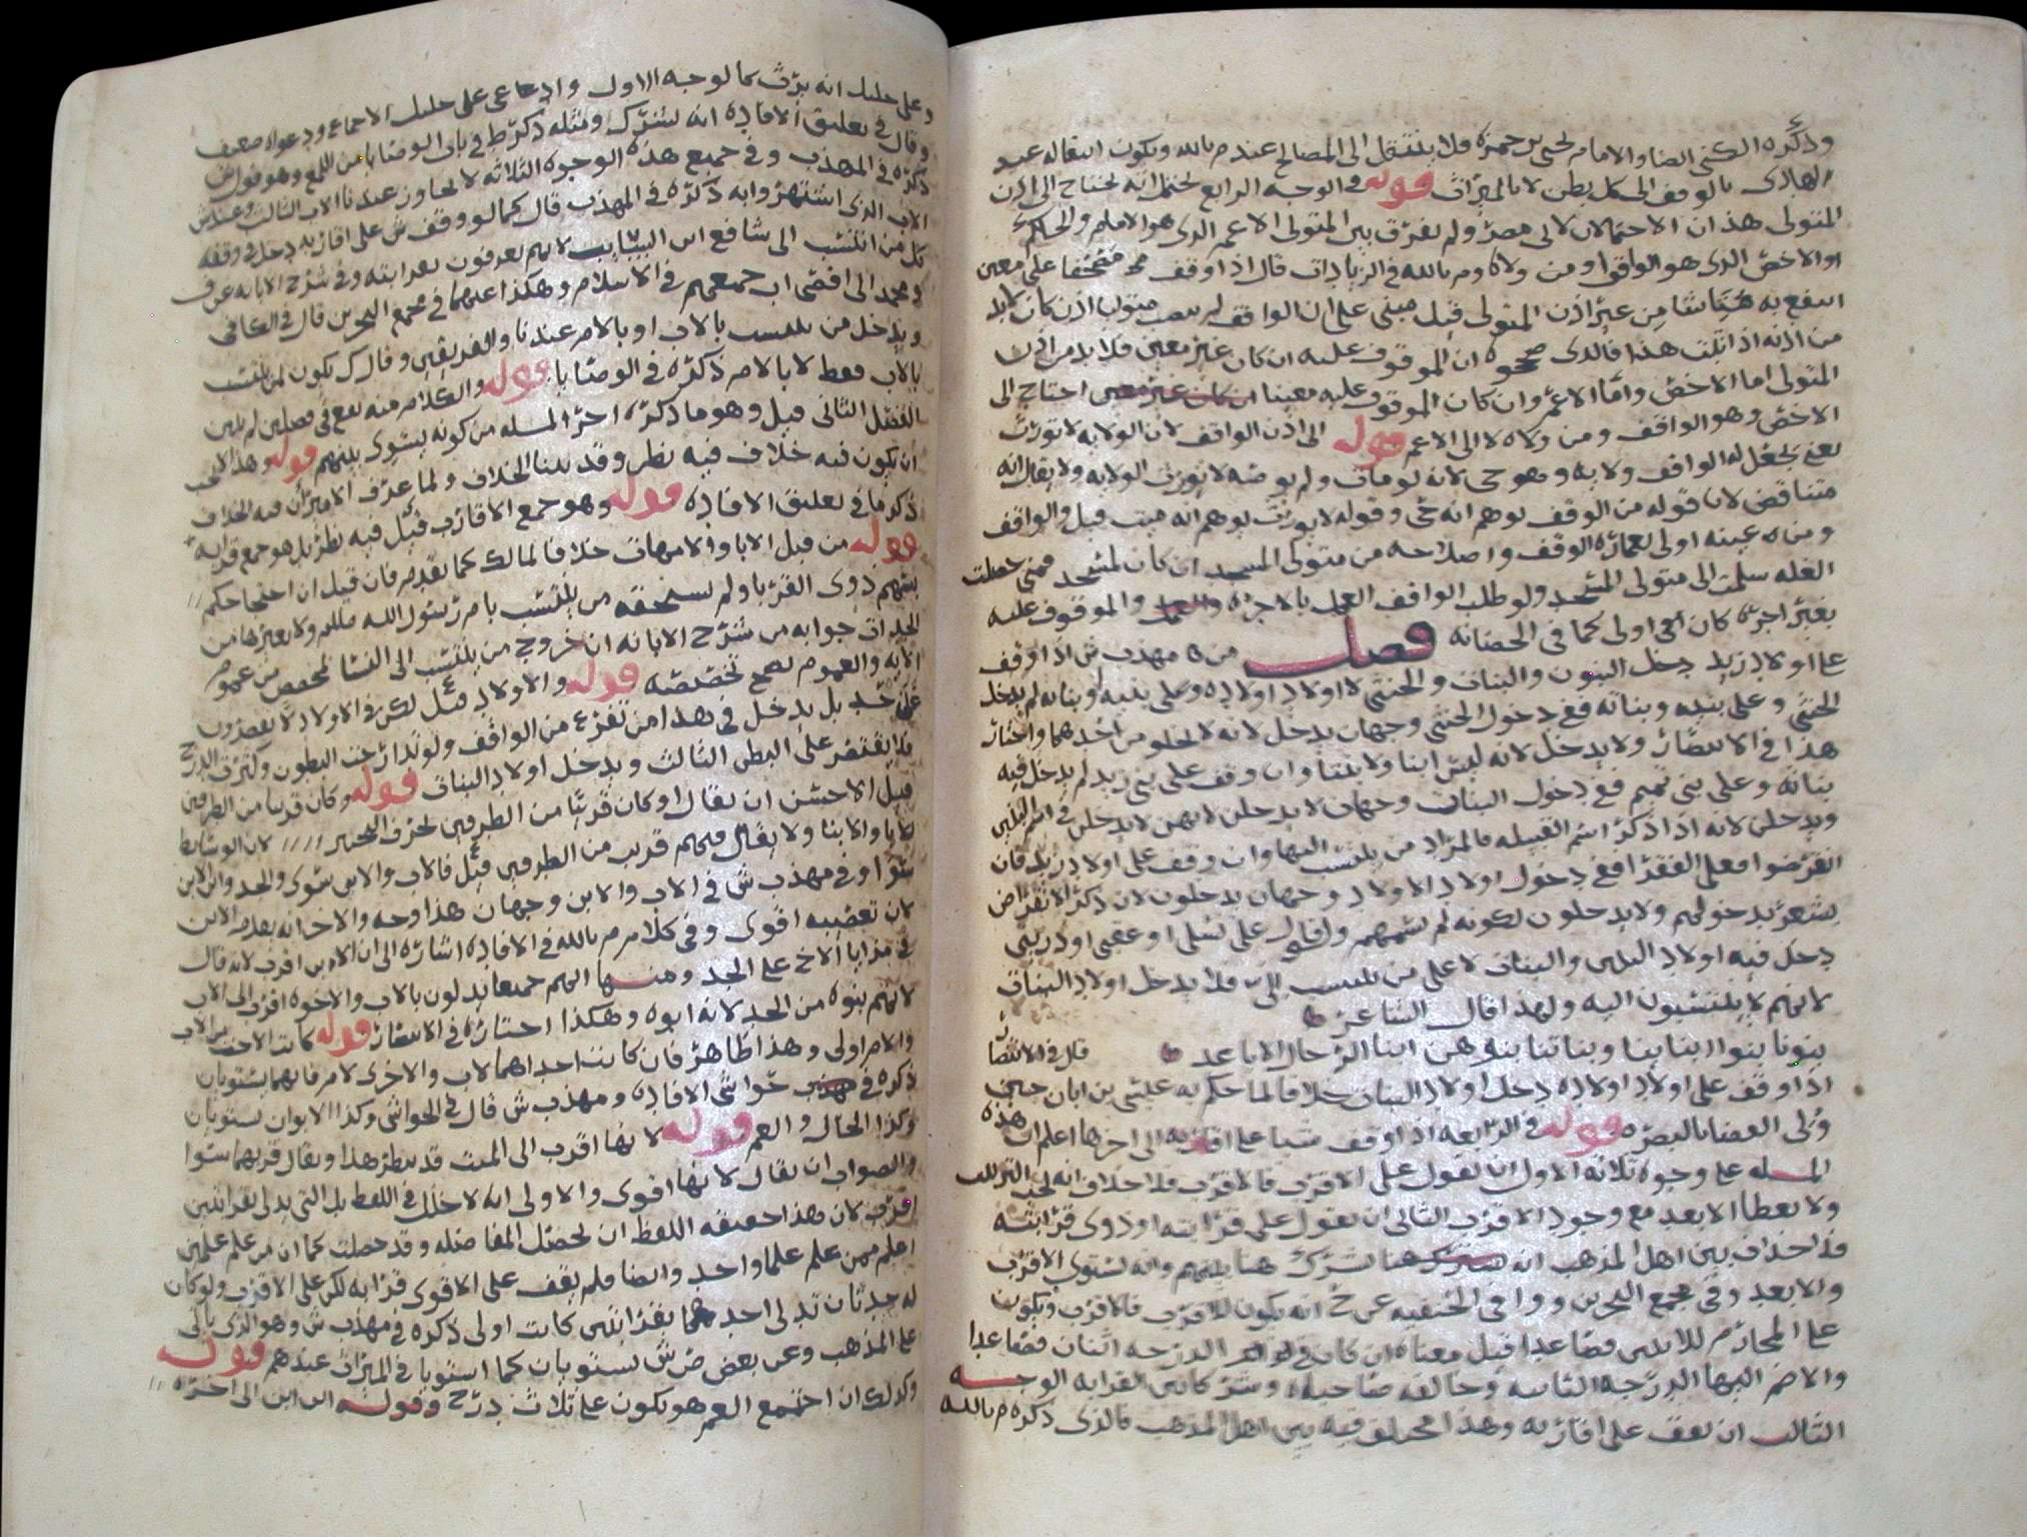 وذكره الكنى ايضا والامام يحيى بن حمزه فلا ينتقل الى المصالح عند م بالله ويكون انتقاله عند
الهادى بالوقف الى كل بطن لا بالميراث قوله فى الوجه الرابع يحتمل انه يحتاج الى اذن
المتولى هذان الاحتمالان لابى مضر ولم يفرق بين المتولى الاعم الذى هو الامام والحاكم
او الاخص الذى هو الواقف او من ولاه وم بالله فى الزيادات قال اذا وقف مصحفا على معين
انتفع به من غير اذن المتولى قيل مبنى على ان الواقف لم ينصب متوليا اذن كان لابد
من اذنه اذا ثبت هذا فالذى صححوه ان الموقوف عليه ان كان غير معين فلا بد من اذن
المتولى اما الاخص واما الاعم وان كان الموقوف عليه معينا ان كان غير معين احتاج الى
الاخص وهو الواقف ومن ولاه لا الى الاعم قوله الى اذن الواقف لان الولايه لا تورث
يعنى يجعل له الواقف ولايه وهو حى لانه لو مات ولم يوصه لا يورث الولايه ولا يقال انه
متناقض لان قوله من الوقف يوهم انه حى وقوله لا يورث يوهم انه ميت قيل والواقف
ومن عينه اولى بعمارة الوقف واصلاحه من متولى المسجد ان كان لمسجد فمتى حصلت
الغله سلمت الى متولى المسجد ولو طلب الواقف العمل بالاجره والموقوف عليه
بغير اجره كان اولى كما فى الحضانه فصل من مهذب ش اذا وقف
على اولاد زيد دخل البنون والبنات والخنثى لا اولاد اولاده وعلى بنيه او بناته لم يدخل
الخنثى وعلى بنيه وبناته ففى دخول الخنثى وجهان يدخل لانه لا يخلو من احدهما واختار
هذا فى الانتصار ولا يدخل لانه ليس ابنا ولا بنتا وان وقف على بنى زيد لم يدخل فيه
بناته وعلى بنى تميم ففى دخول البنات وجهان لا يدخلن لانهن لا يدخلن فى اسم البنين
ويدخلن لانه اذا ذكر اسم القبيله فالمراد من ينتسب اليها وان وقف على اولاد زيد فان
انقرضوا فعلى الفقرا ففى دخول اولاد الاولاد وجهان يدخلون لان ذكر الانقراض
يشعر بدخولهم ولا يدخلون لكونه لم يسمهم وان قال على نسلى او عقبى او ذريتى
دخل فيه اولاد البنين والبنات لا على من ينتسب الى فلا يدخل اولاد البنات
لانهم لا ينتسبون اليه ولهذا قال الشاعر
بنونا بنوا ابنائنا وبناتنا بنوهن ابنا الرجال الاباعد قال فى الانتصار
اذا وقف على اولاد اولاده دخل اولاد البنات خلافا لما حكم به عيسى بن ابان حين
ولى القضا بالبصره قوله فى الرابعه اذا وقف شيا على اقاربه الى اخرها اعلم ان هذه
المسله على وجوه ثلاثه الاول ان يقول على الاقرب فالاقرب فلا خلاف انه يجب الترتيب
ولا يعطا الابعد مع وجود الاقرب الثانى ان يقول على قرابته او ذوى قرابته
فلا خلاف بين اهل المذهب انه هنا بينهم وانه يستوى الاقرب
والابعد وفى مجمع البحرين ووافى الحنفيه عن ح انه يكون للاقرب فالاقرب ويكون
على المحارم للاثنين فصاعدا قيل معناه ان كان فى الدرجه اثنان فصاعدا
والا ضم اليها الدرجه الثانيه وخالفه صاحباه القرابه الوجه
الثالث ان يقف على اقاربه وهذا مختلف فيه بين اهل المذهب فالذى ذكره م بالله
وعلى خليل انه يرث كالوجه الاول وادعى على خليل الاجماع ودعواه ضعيف
وقال فى تعليق الافاده انه يشترك ومثله ذكر ط فى باب الوصايا من اللمع وهو قول ش
ذكره فى المهذب وفى جميع هذه الوجوه الثلاثه لا يجاوز عندنا الاب الثالث وعند ش
الاب الذى اشتهر وابه ذكره فى المهذب قال كما لو وقف ش على اقاربه دخل فى وقفه
كل من انتسب الى شافع ابن السائب لانهم يعرفون بقرابته وفى شرح الابانه عن ف
ومحمد الى اقصى اب جمعهم فى الاسلام وهكذا عنهما فى مجمع البحرين قال فى الكافى
ويدخل من ينتسب بالاب او بالام عندنا والفريقين وقال ك يكون لمن ينتسب
بالاب فقط لا بالام ذكره فى الوصايا قوله والكلام منه يقع فى فصلين لم يبين
الفصل الثانى قيل وهو ما ذكره اخر المسله من كونه يستوى بينهم قوله وهذا لا يجب
ان يكون فيه خلاف فيه نظر وقد بينا الخلاف ولما عرف الامير ان فيه الخلاف
ذكر ما فى تعليق الافاده قوله وهو جمع الاقارب قيل فيه نظر بل هو جمع قرابه
قوله من قبل الابا والامهات خلافا لمالك كما تقدم فان قيل ان احتجاجكم
بسهم ذوى القربا ولم يستحقه من ينتسب بام رسول الله صللم ولا بغيرها من
الجدات جوابه من شرح الابانه ان خروج من ينتسب الى النسا مخصص من عموم
الايه والعموم يصح تخصيصه قوله والاولاد قيل لكن فى الاولاد لا يقصرون
على حد بل يدخل فى هذا من تفرع من الواقف ولو تدارجت البطون وكثرت الدرج
فلا يقتصر على البطن الثالث ويدخل اولاد البنات قوله وكان قريبا من الطرفين
قيل الاحسن ان يقال او كان قريبا من الطرفين بحرف التخيير لان الوسايط
كالابا والابنا ولا يقال فيهم قريب من الطرفين قيل فالاب والابن سوى والجد وابن الابن
سوا وفى مهذب ش فى الاب والابن وجهان هذا وجه والاخر انه يقدم الابن
لان تعصيبه اقوى وفى كلام م بالله فى الافاده اشاره الى ان الابن اقرب لانه قال
فى مزايا الاخ على الجد ومنها انهم جميعا يدلون بالاب والاخوه اقرب الى الاب
لانهم بنوه من الجد لانه ابوه وهكذا اختاره فى الانتصار قوله كانت الاخت من الاب
والام اولى وهذا ظاهر فان كانتا احداهما لاب والاخرى لام فانهما يستويان
ذكره فى حواشى الافاده ومهذب ش قال فى الحواشى وكذا الابوان يستويان
وكذا الخال والعم قوله لانها اقرب الى الميت قد ينظر هذا ويقال قربهما سوا
والصواب ان يقال لانها اقوى والاولى انه لا خلل فى اللفظ بل التى تدلى بقرابتين
اقرب لان هذا حقيقه اللفظ ان يحصل المفاضله وقد حصلت كما ان من علم علمين
اعلم ممن علم علما واحد وايضا فلم يقف على الاقوى قرابه لكن على الاقرب ولو كان
له جدتان تدلى احدهما بقرابتين كانت اولى ذكره فى مهذب ش وهو الذى ياتى
على المذهب وعن بعض ش يستويان كما استويا فى الميراث عندهم قوله
وكذلك ان اجتمع العم هو يكون على ثلاث درج وقوله ابن ابن الى اخره